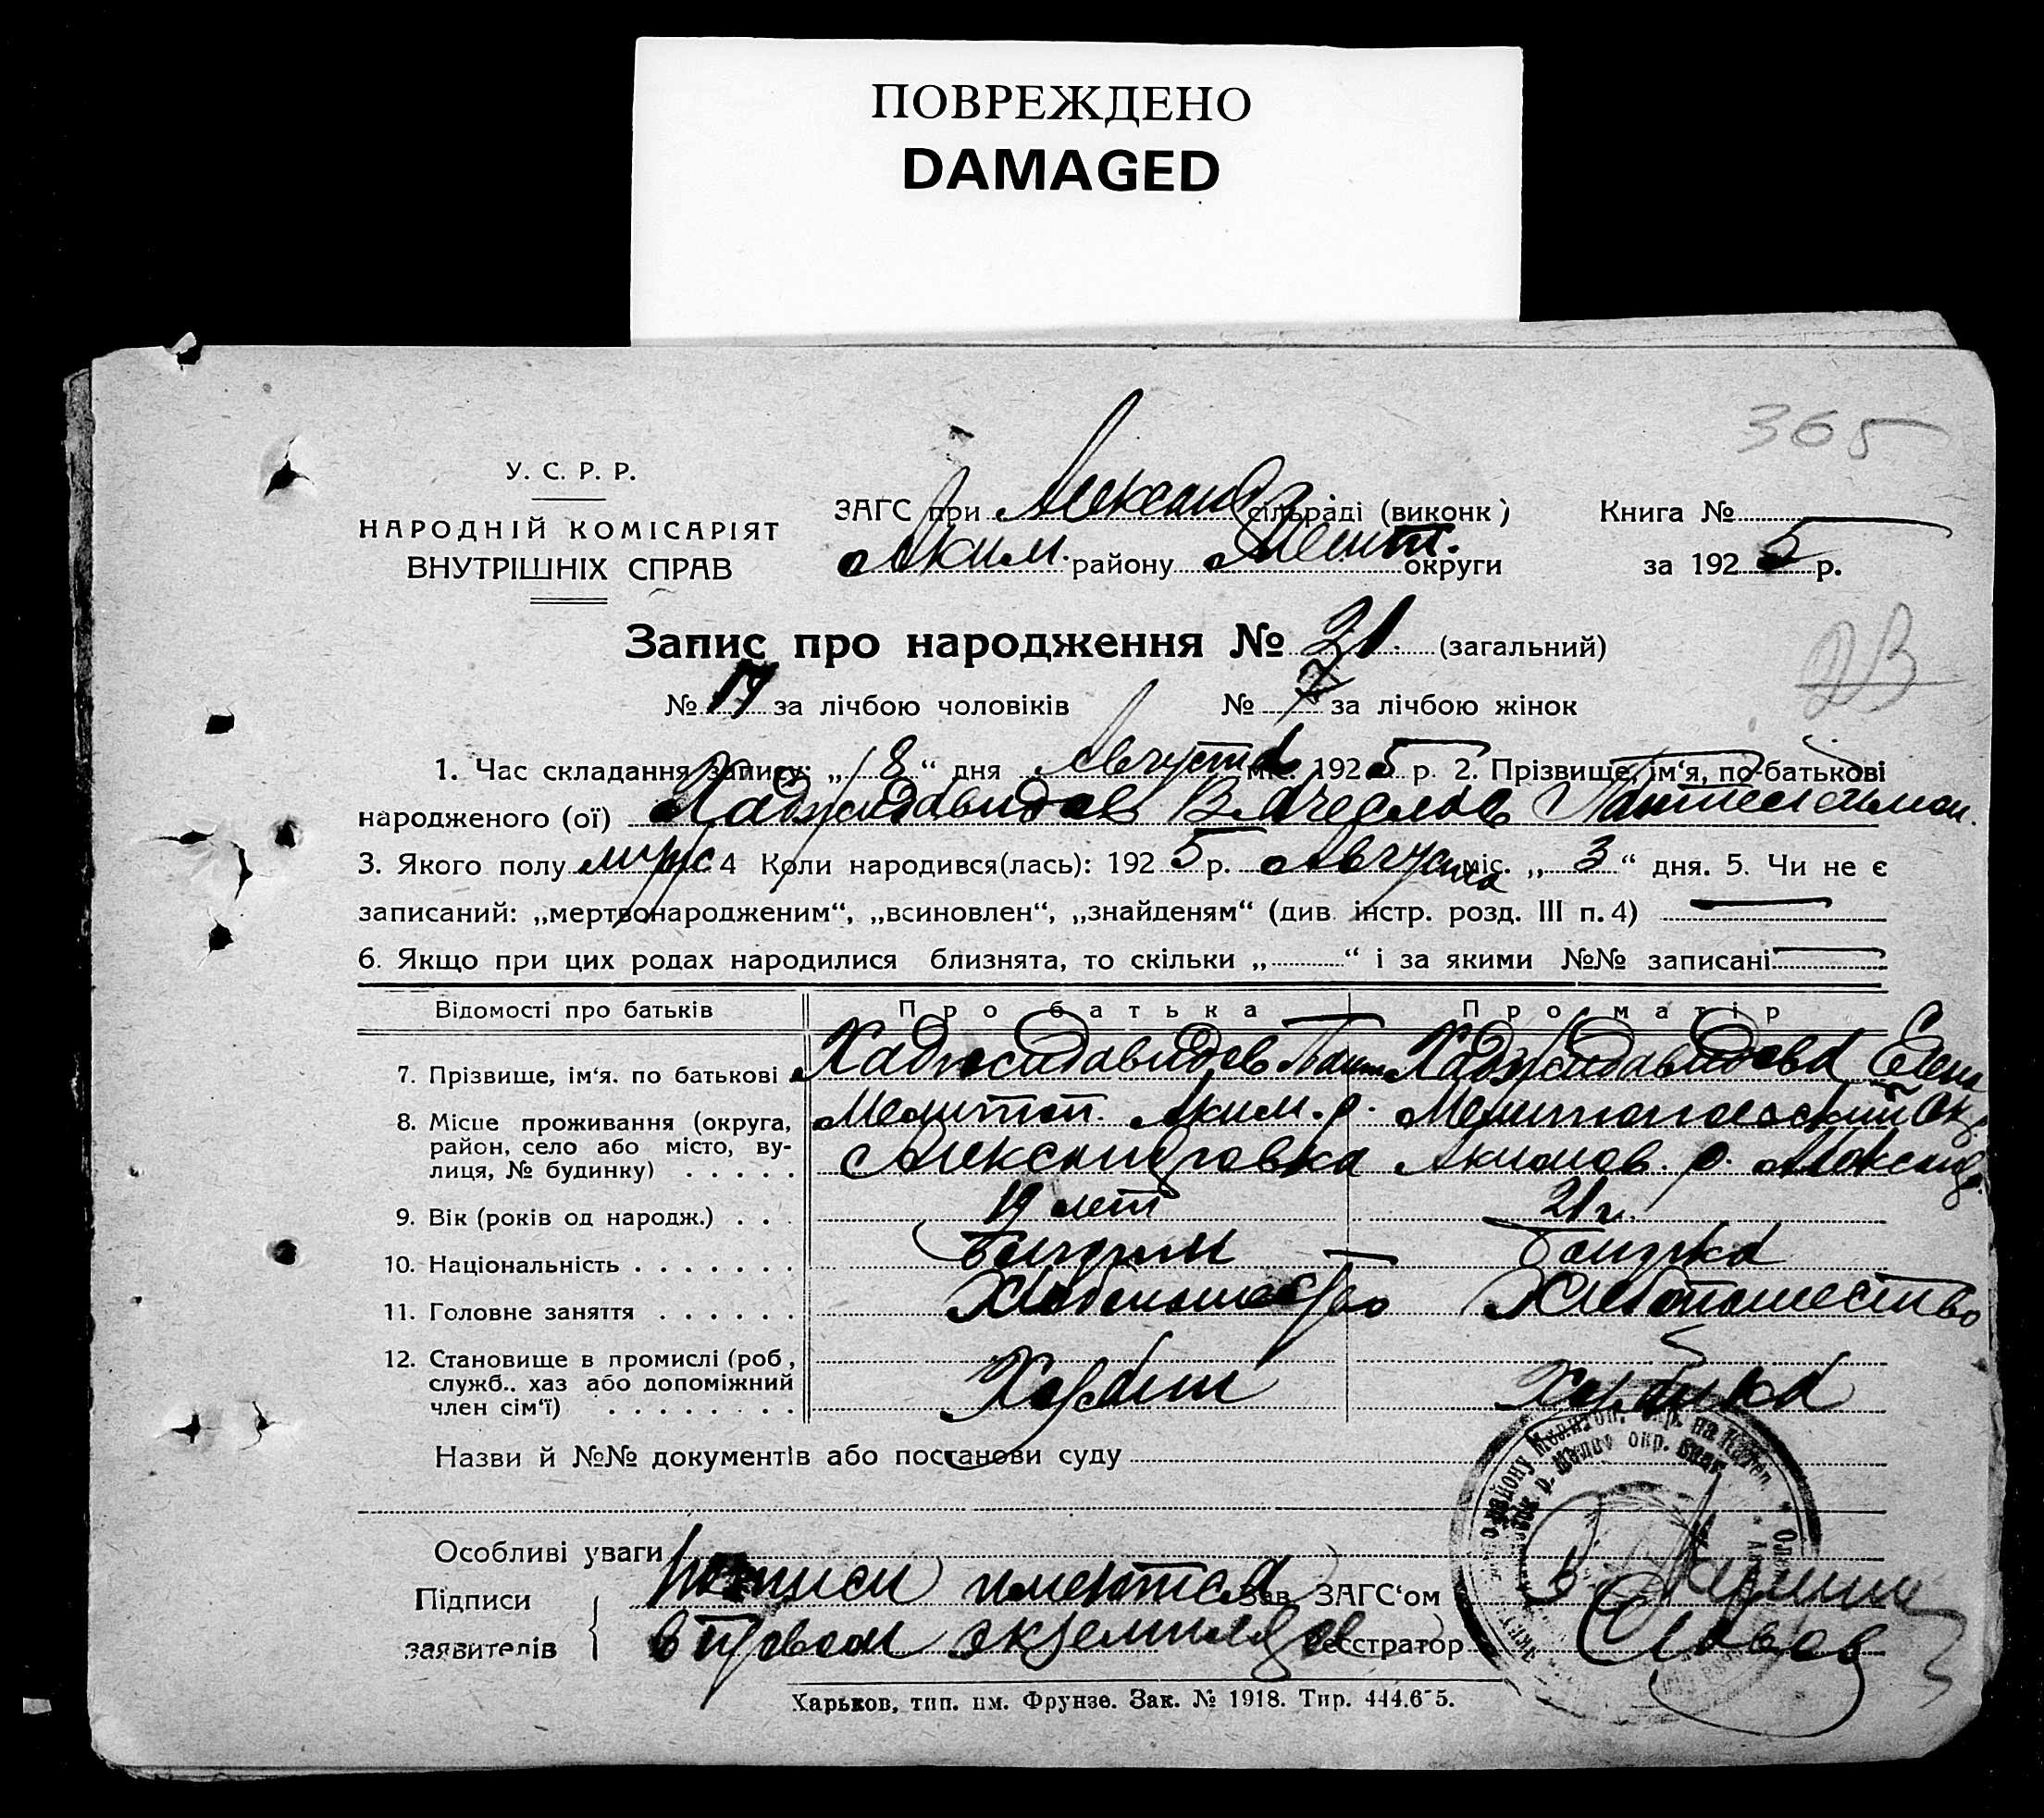 ПОВРЕЖДЕНО
DAMAGED
365
У. С. Р. Р.
НАРОДНІЙ КОМІСАРІЯТ
ВНУТРІШНІХ СПРАВ
ЗАГС при Александ сільраді (виконк)
Аким. району Мелит. округи
Книга №
за 1925 р.
Запис про народження № 21. (загальний)
№ 14 за лічбою чоловіків № 7 за лічбою жінок
1. Час складання запису: „ 8 “ дня Августа міс. 1925 р. 2. Прізвище, ім‘я, по-батькові
народженого (ої) Хаджидавидов Вячеслав Пантелеймон.
3. Якого полу муж 4 Коли народився(лась): 1925 р. Августа міс. „ 3 “ дня. 5. Чи не є
записаний: „мертвонародженим“, „всиновлен“, „знайденям“ (див. інстр. розд. III п. 4)
6. Якщо при цих родах народилися близнята, то скільки „ “ і за якими №№ записані
Відомості про батьків Про батька Про матір
7. Прізвище, ім‘я. по батькові Хаджидавидов Пант Хаджидавидова Елена
8. Місце проживання (округа, район, село або місто, вулиця, № будинку) Мелитоп. Аким. р. Александровка Мелитопольский Окр. Акимов. р. Александ.
9. Вік (років од народж.) 19 лет 21 г.
10. Національність Болгарин Болгарка
11. Головне заняття Хлебопашество Хлебопашество
12. Становище в промислі (роб, служб.. хаз або допоміжний член сім‘ї)
Назви й №№ документів або постанови суду
Особливі уваги
Підписи Подписи имеются Зав. ЗАГС‘ом
заявителів в первом экземпляре Реєстратор
Харьков, тип. им. Фрунзе. Зак. № 1918. Тир. 444.6 5.